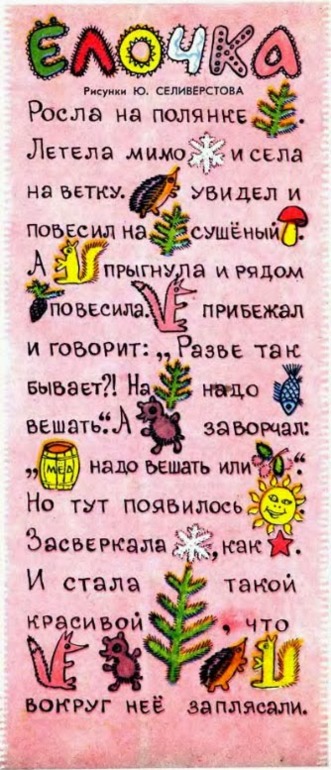 ЁЛОЧКА
Рисунки Ю. СЕЛИВЕРСТОВА
Росла на полянке .
Летела мимо и села
на ветку. увидел и
повесил на сушёный .
А прыгнула и рядом
повесила. прибежал
и говорит: „Разве так
бывает?! На надо
вешать“. А заворчал:
„ МЕД надо вешать или “.
Но тут появилось .
Засверкала , как .
И стала такой
красивой , что
вокруг неё заплясали.